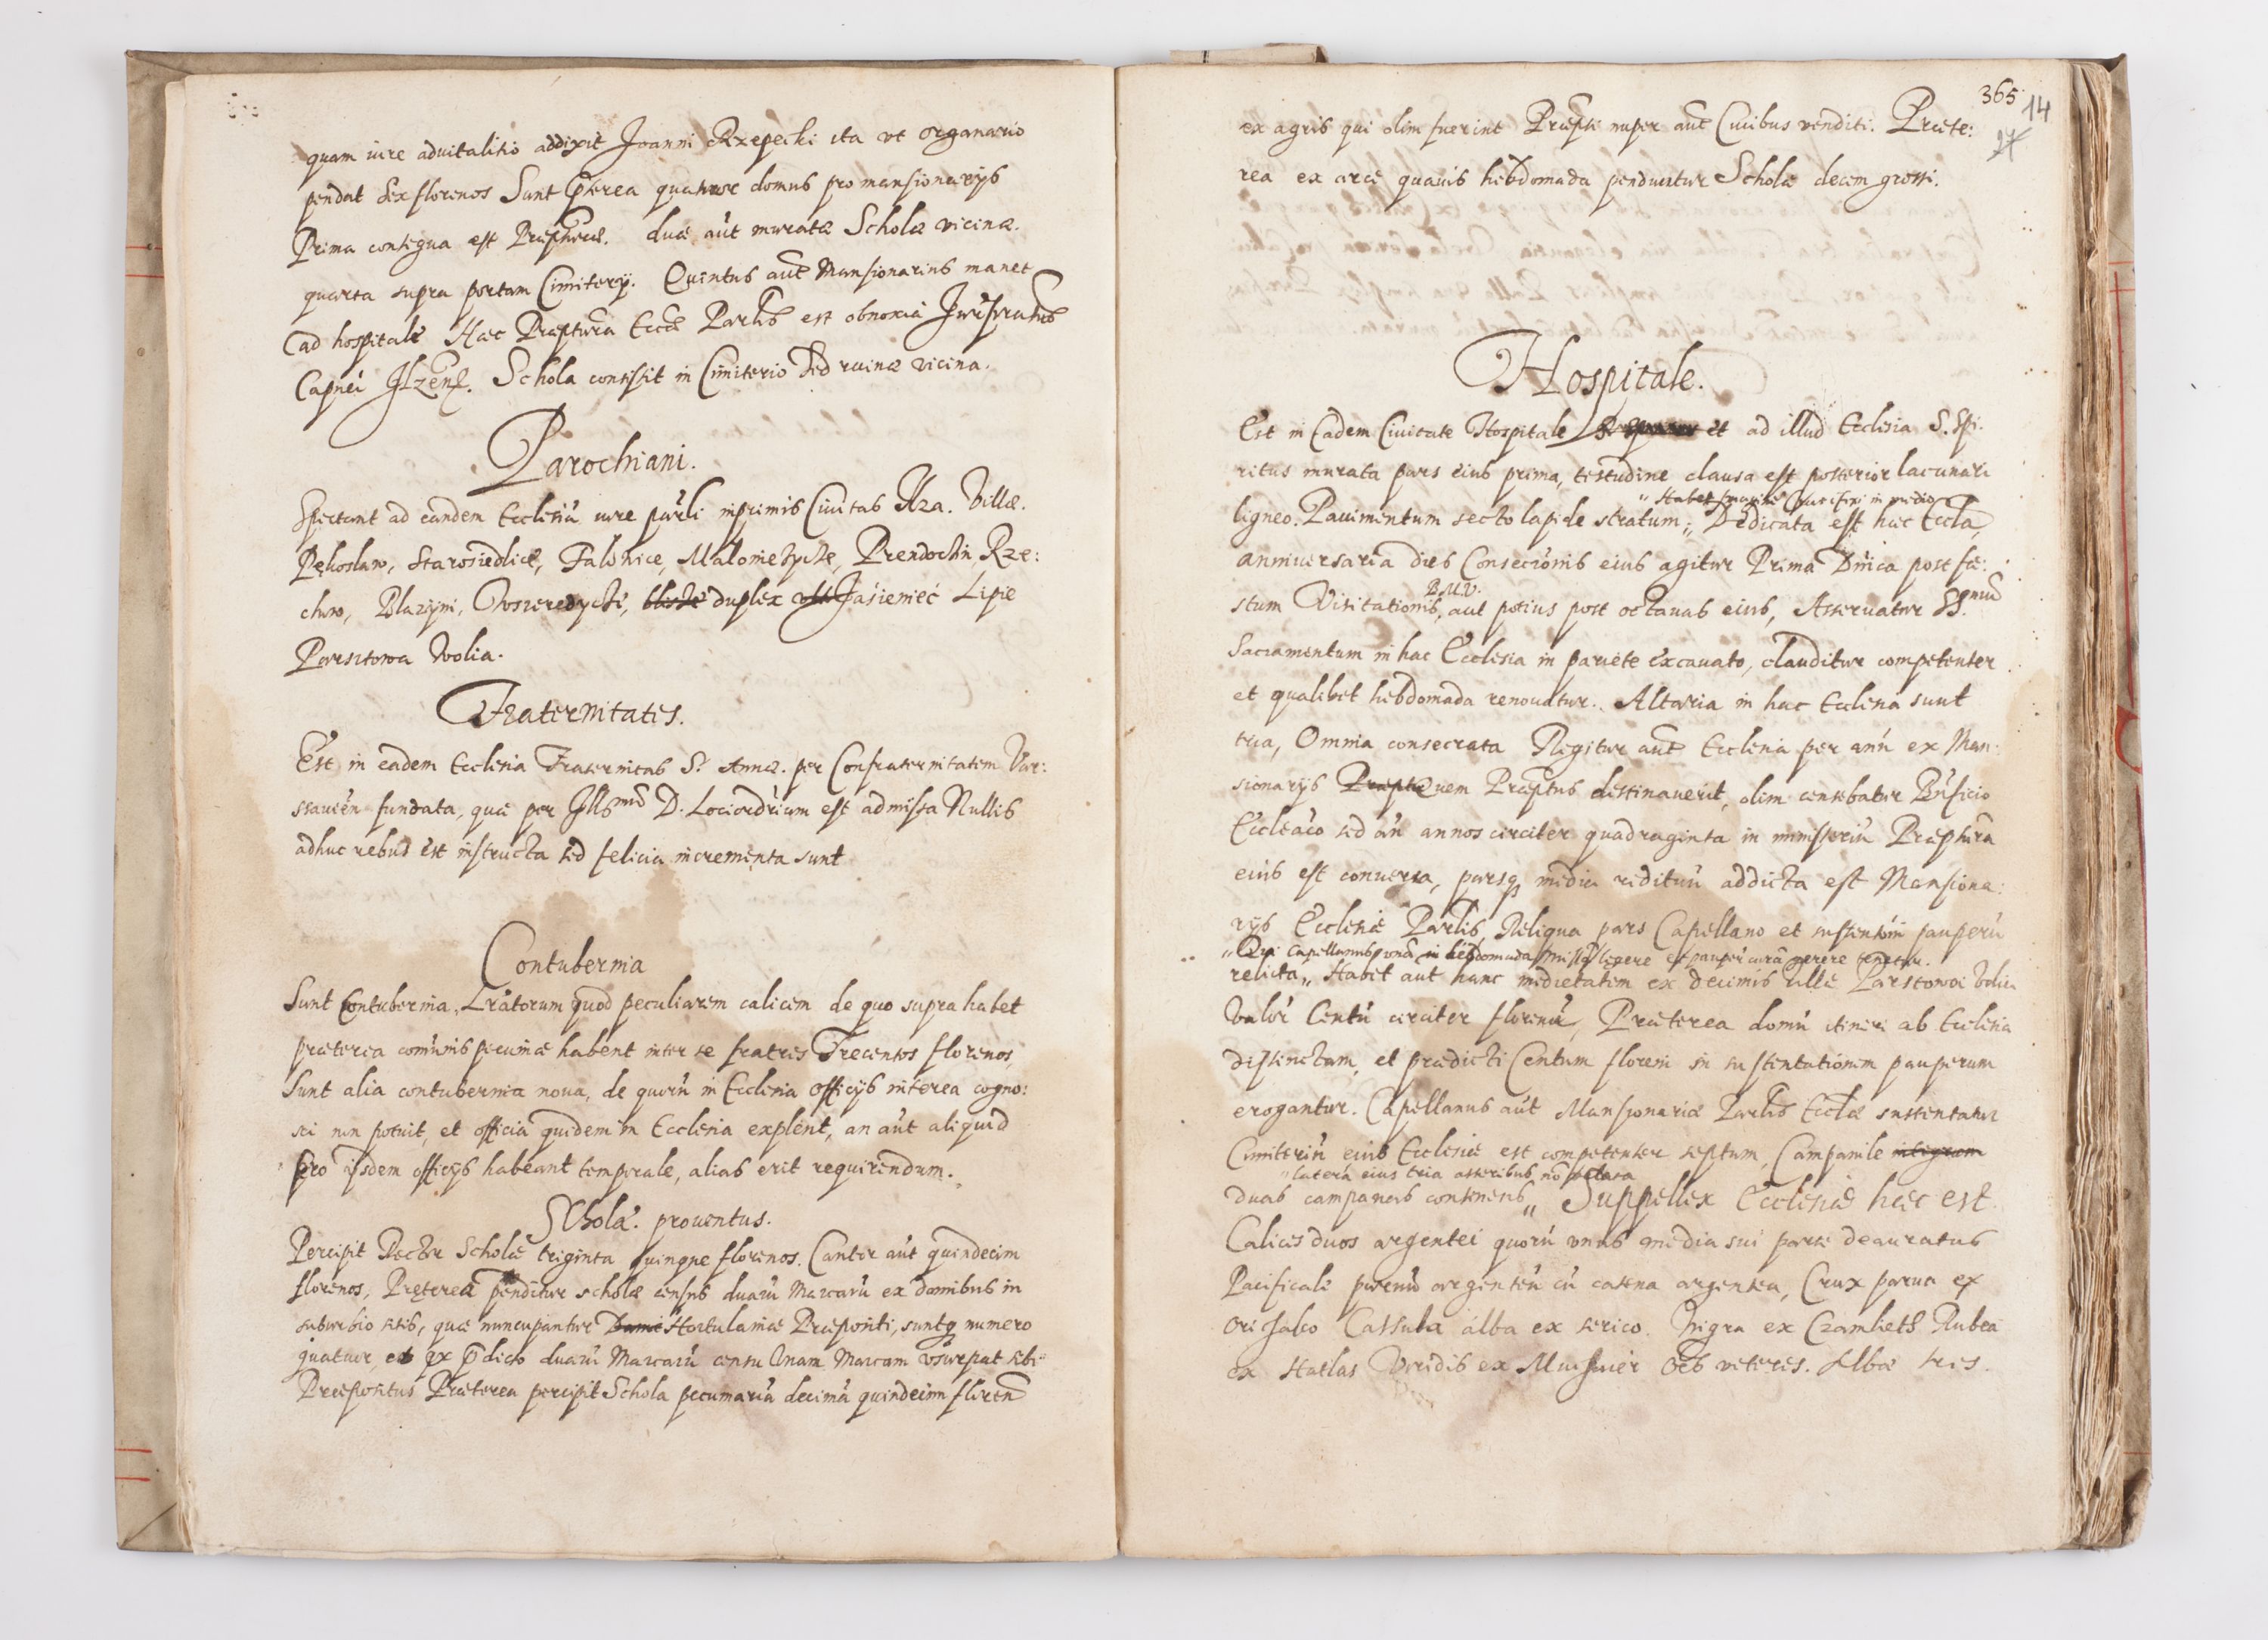 quam iure aduitalitio addixit Joanni Rzepecki ita vt organario
pendat sex florenos Sunt p̄terea quatuor domus pro mansionarijs
Prima contigua est Præpturæ. duæ aút muratæ Scholæ vicinæ.
quarta supra portam Cimiterij. Quintus aut̄ Mansionarius manet
ad hospitale Hæc Præptura Eccæ Parlis est obnoxia
Schola consistit in Cimiterio sed ruinæ vicina.
Parochiani.
Spectant ad eandem Ecclesiã iure parli inprimis Ciuitas Ilza. Villæ.
Pękosław, Starosiedlicę, Falowice, Małomierzyckę, Prendochin Rze:
chow, Błaziny, duplex Jásieniéc Lipie
Parsztowa Wolia.
Fraternitates.
Est in eadem Ecclesia Fraternitas S: Annæ. per Confraternitatem Var:
ssauien fundata, quæ per Illsmũ D. Lociordrium est admissa Nullis
adhuc rebus est instructa sed felicia incrementa sunt
Contubernia
Sunt Contubernia, quod peculiarem calicem de quo supra habet
præterea comũnis pecuniæ habent inter se fratres Trecentos florenos,
Sunt alia contubernia noua, de quorũ in Ecclesia officijs interea cogno:
sci non potuit, et officia quidem in Ecclesia explent, an aút aliquid
pro ijsdem officijs habeant temporale, alias erit requirendum.
Scholæ. prouentus.
Percipit Rector Scholæ triginta quinque florenos. Cantor aút quindecim
florenos, Pręterea penditur scholæ census duarũ Marcarũ ex domibus in
suburbio sitis, quæ nuncupantur Hortulaniæ Præpositi, suntq numero
quatuor, et ex p̄dicto duarũ Marcarũ censu vnam Marcam vsurpat sibi
Præpositus Præterea percipit Schola pecuniariã decimã quindecim floren̄
365
14
ex agris qui olim fuerint Præpti nuper aut̄ Ciuibus venditi. Præte:
rea ex arce quauis hebdomada penduntur Scholæ decem grossi.
Hospitale.
Est in Eadem Ciuitate Hospitale et ad illud Ecclesia S. Spi:
ritus murata pars eius prima, testudine clausa est posterior lacunari
" Habet Crucifixi in medio
ligneo. Pauimentum secto lapide stratum," Dedicata est hæc Eccla,
anniuersaria dies Consecrõnis eius agitur Prima Dnica post fe:
B.M.V.
stum Visitationis, aut potius post octauas eius, Asseruatur SS.mũ
Sacramentum in hac Ecclesia in pariete excauato, clauditur competenter
et qualibet hebdomada renouatur. Altaria in hac Ecclesia sunt
tria, Omnia consecrata Regitur aut̄ Ecclesia per ex Man:
sionarijs quem Præptus destinauerit, olim censebatur Bñficio
Eccleãco sed annos circiter quadraginta in ministeriũ Præpturæ
eius est conuersa, parsq media redituũ addicta est Mansiona:
rijs Ecclesiæ Parlis, Reliqua pars Capellano et pauperũ
" Qui Capellanus legere et curã gerere tenetur.
relicta," Habet aut hanc medietatem ex decimis villæ Parsztowa Wolia
Valór Centũ circiter florenũ, Præterea domũ itinere ab Ecclesia
distinctam, et prædicti Centum floreni in sustentationem pauperum
erogantur. Capellanus aút Mansionariæ Parlis Ecclæ sustentatur
Cimiteriũ eius Ecclesiæ est competenter septum, Campanile integrum
" latera eius tria asseribus nõ
duas campanas continens," Suppellex Ecclesiæ hæc est.
Calices duos argentei quorũ vnus media sui parte deauratus
Pacificale paruũ argenteũ cũ catena argentea, Crux parua ex
Cassula alba ex serico. Nigra ex Czamlieth Rubea
ex Hatlas Viridis ex Muchaier veteres. Albæ tres.